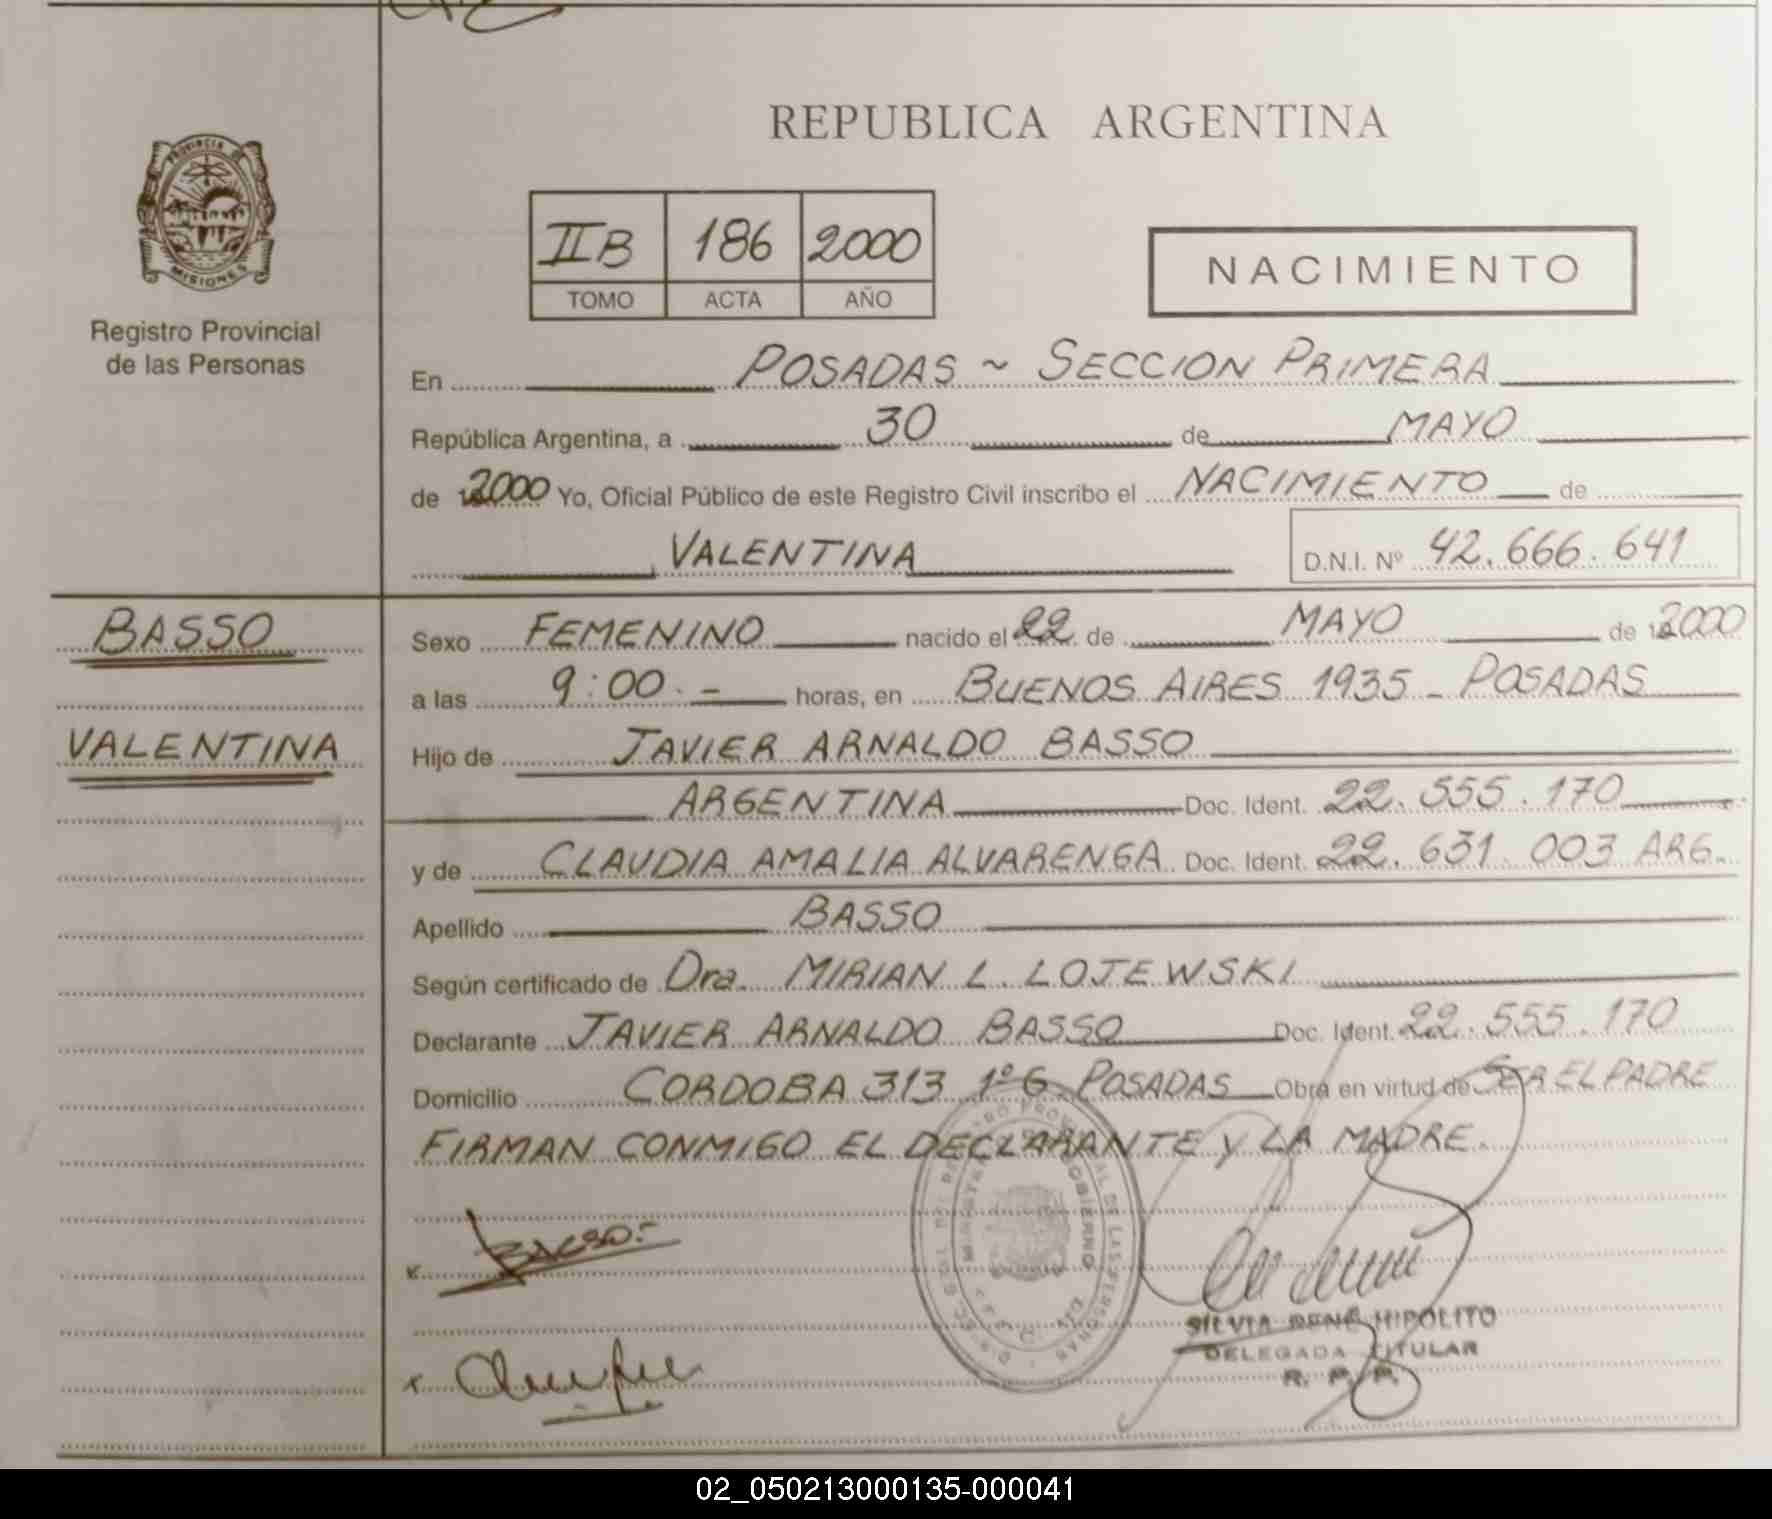 REPUBLICA ARGENTINA
PROVINCIA DE
MISIONES
Registro Provincial
de las Personas
IIB 186 2000
TOMO ACTA AÑO
NACIMIENTO
En POSADAS ~ SECCION PRIMERA
República Argentina, a 30 de MAYO
de 2000 Yo, Oficial Público de este Registro Civil inscribo el NACIMIENTO de
VALENTINA D.N.I. Nº 42.666.641
BASSO
VALENTINA
Sexo FEMENINO nacido el 22 de MAYO de 2000
a las 9:00.- horas, en BUENOS AIRES 1935 - POSADAS
Hijo de JAVIER ARNALDO BASSO
ARGENTINA Doc. Ident. 22.555.170
y de CLAUDIA AMALIA ALVARENGA Doc. Ident. 22.631.003 ARG.
Apellido BASSO
Según certificado de Dra. MIRIAN L. LOJEWSKI
Declarante JAVIER ARNALDO BASSO Doc. Ident. 22.555.170
Domicilio CORDOBA 313 1º G POSADAS Obra en virtud de SER EL PADRE
FIRMAN CONMIGO EL DECLARANTE Y LA MADRE.
BASSO.-
SILVIA RENÉ HIPOLITO
DELEGADA TITULAR
R. P. P.
02_050213000135-000041